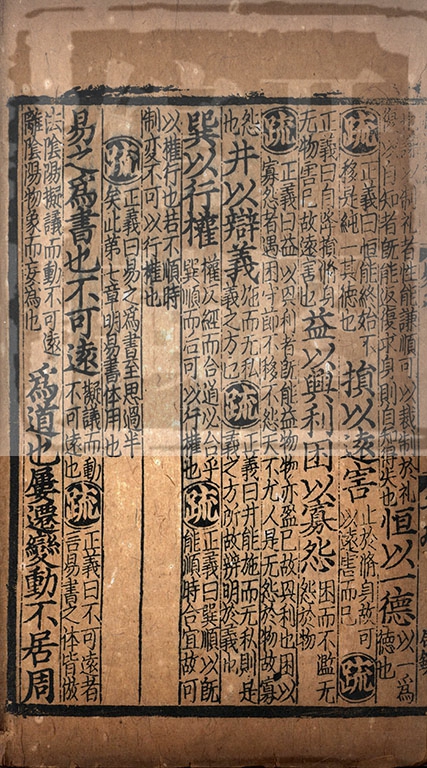 謙以制禮者性能謙順可以裁制於禮復以自知者既能返復求身則自知得失也恒以一德以一為德也
疏正義曰恒能終始不移是純一其德也損以遠害止於脩身故可以遠害而已疏
正義曰自降損脩身无物害已故遠害也益以興利困以寡怨困而不濫无怨於物
疏正義曰益以興利者既能益物物亦盈已故興利也困以寡怨者遇困守節不移不怨天不尤人是无怨於物故寡
怨也井以辯義施而无私義之方也疏正義曰井能施而无私則是義之方所故辨明於義也
巽以行權權以經而合道必合乎巽順而后可以行權也疏正義曰巽順以既能順時合宜故可
以權行也若不順時制變不可以行權也
疏正義曰易之為書至思過半矣此第七章明易書體用也
易之為書也不可遠擬議而動不可遠也疏正義曰不可遠者言易書之體皆倣
法陰陽擬議而動不可遠離陰陽物象而妄為也為道也屢遷變動不居周